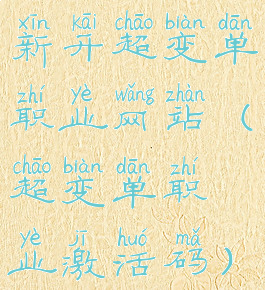 xīn kāi chāo biàn dān
新开超变单
zhí yè wǎng zhàn
职业网站（
chāo biàn dān zhí
超变单职
yè jī huó mǎ
业激活码）